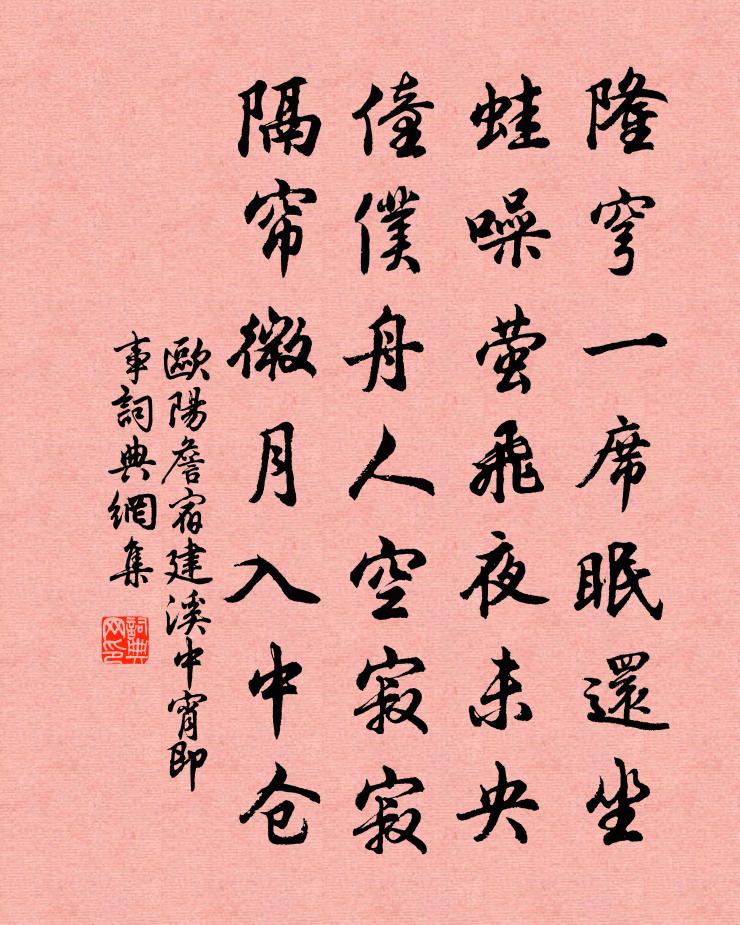 隆穹一席眠還坐
蛙噪萤飛夜未央
僮僕舟人空寂寂
隔帘微月入中仓
歐陽詹宿建溪中宵即
事詞典網集
詞典
网印